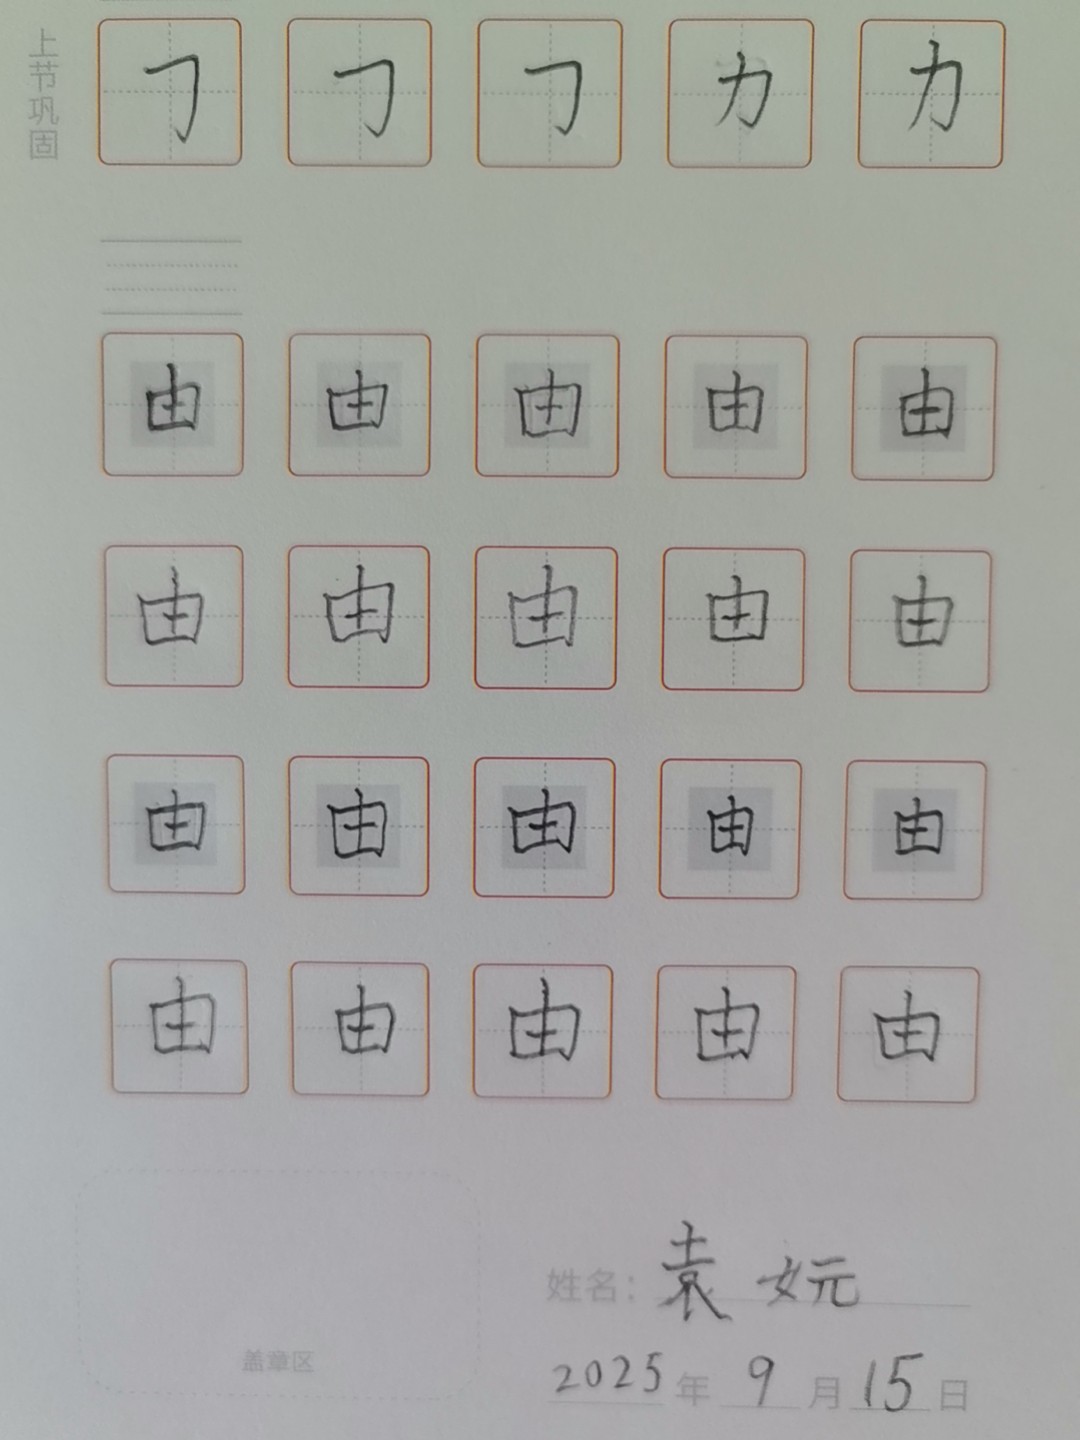 上节巩固
㇆ ㇆ ㇆ 力 力
由 由 由 由 由
由 由 由 由 由
由 由 由 由 由
由 由 由 由 由
姓名：袁妧
盖章区
2025年9月15日